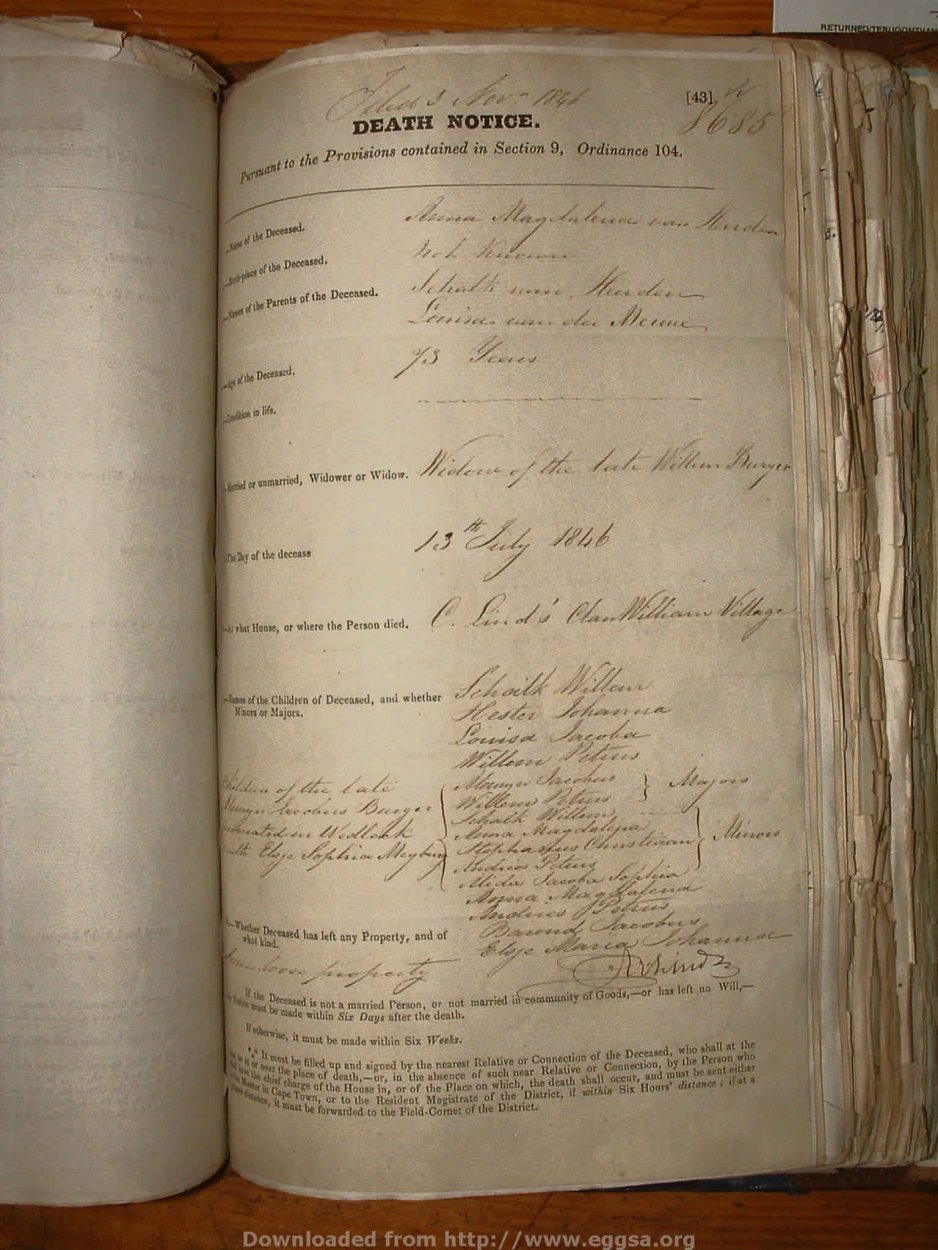 RETURNED/TERUGONTVAN
Filed 3 Nov. 1846
[43]
8685
DEATH NOTICE.
Pursuant to the Provisions contained in Section 9, Ordinance 104.
Name of the Deceased. Anna Magdalena van Heerden
Birth-place of the Deceased. Not Known
Names of the Parents of the Deceased. Schalk van Heerden
Louisa van der Merwe
Age of the Deceased. 73 Years
Condition in life.
Married or unmarried, Widower or Widow. Widow of the late Willem Burger
The Day of the decease 13th July 1846
At what House, or where the Person died. C. Lind's ClanWilliam Village
Names of the Children of Deceased, and whether Minors or Majors.
Schalk Willem
Hester Johanna
Louisa Jacoba
Willem Petrus
Children of the late
Jacobus Burger
in Wedlock
with Elsje Sophia Meyburg
Jacobus
Willem Petrus
Majors
Schalk Willem
Anna Magdalena
Stephanus Christiaan
Andries Petrus
Alida Jacoba Sophia
Minors
Anna Magdalena
Andries Petrus
Barend Jacobus
Elsje Maria Johanna
Whether Deceased has left any Property, and of what kind.
loose property
Lind
If the Deceased is not a married Person, or not married in community of Goods,—or has left no Will,—
must be made within Six Days after the death.
If otherwise, it must be made within Six Weeks.
*** It must be filled up and signed by the nearest Relative or Connection of the Deceased, who shall at the
be at or near the place of death,—or, in the absence of such near Relative or Connection, by the Person who
the chief charge of the House in, or of the Place on which, the death shall occur, and must be sent either
Master in Cape Town, or to the Resident Magistrate of the District, if within Six Hours' distance; if at a
distance, it must be forwarded to the Field-Cornet of the District.
Downloaded from http://www.eggsa.org